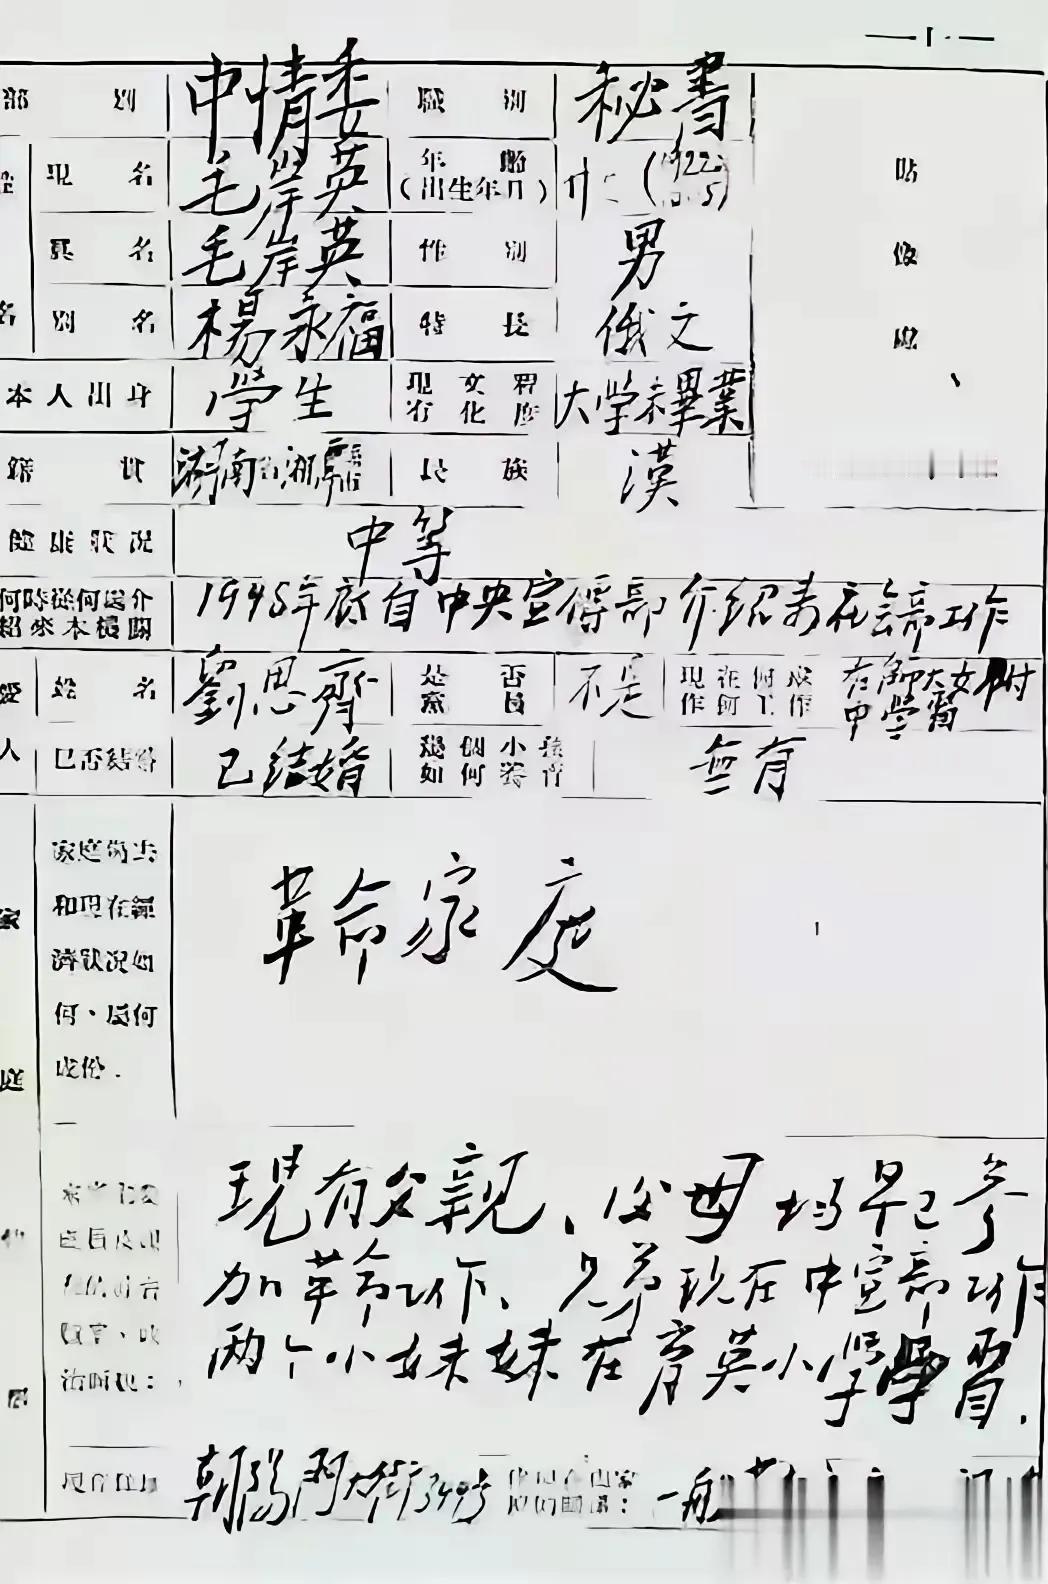 — 1 —
部 别 中情委 職 别 秘書
現 名 毛岸英 年 齡 (出生年月) 廿 (1922
真 名 毛岸英 性 别 男
别 名 楊永福 特 長 俄文
貼
像
處
本人出身 学生 現有文化程度 大学未畢業
籍 貫 湖南省湘 民 族 漢
健康狀况 中等
何時從何處介紹來本機關 1948年底自中央宣傳部介紹来社会部工作
愛人 姓 名 劉思齊 是否黨員 不是 現在何工作 在師大女附中學習
已否結婚 已結婚 幾個小孩如何養育 無有
家庭
家庭過去和現在經濟狀况如何、屬何成份. 革命家庭
現有父親、父母均早已参
加革命工作、兄弟現在中宣部工作
两个小妹妹在育英小学學習.
朝陽門大街 一般